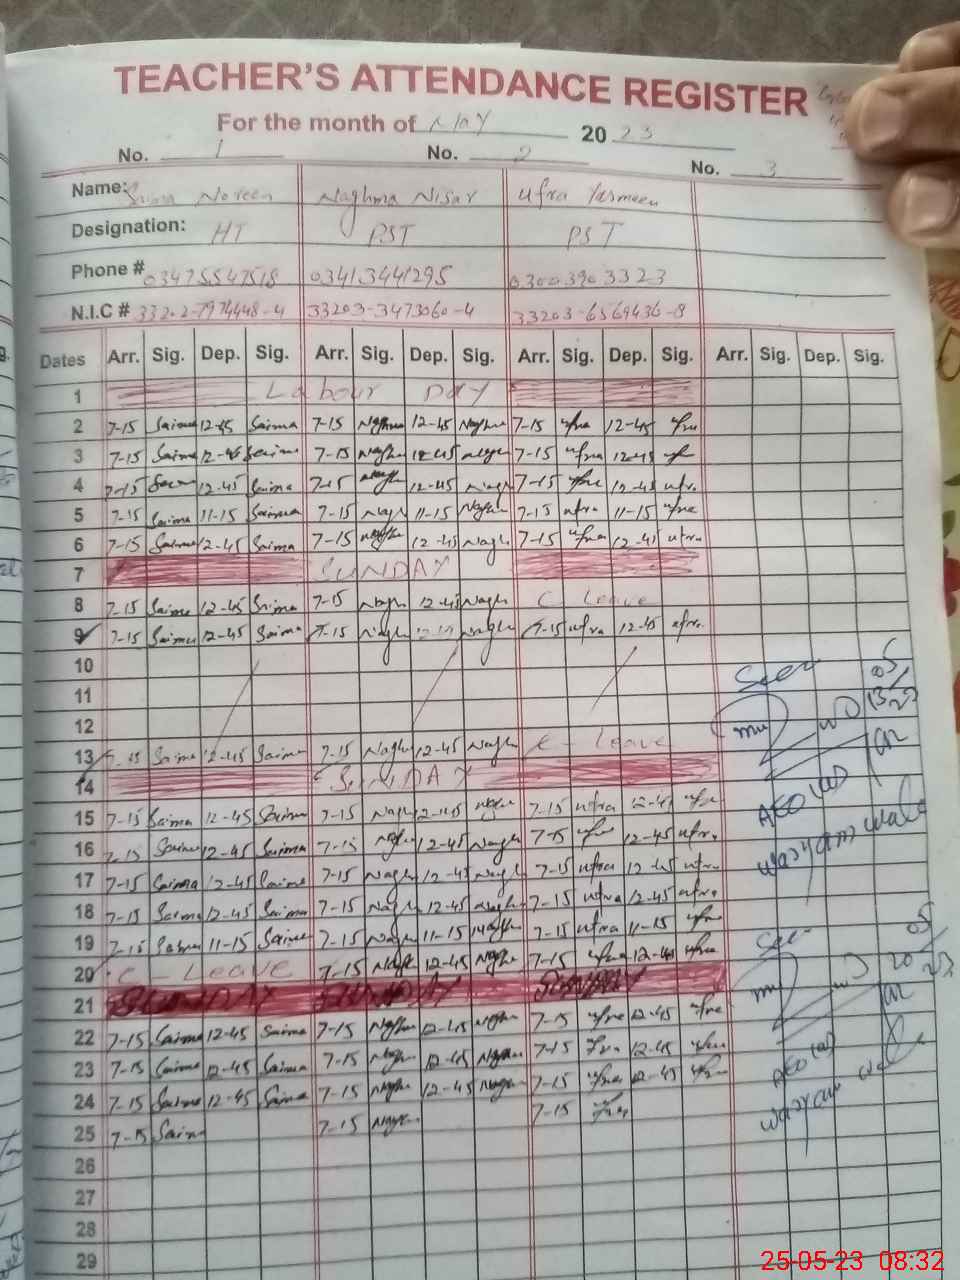 TEACHER'S ATTENDANCE REGISTER
For the month of May 2023
No. 1 No. 2 No. 3
Name: Saima Noreen Naghma Nisar Ufra Yasmeen
Designation: HT PST PST
Phone # 03475547518 03413441295 03003903323
N.I.C # 33202-7974448-4 33203-3473060-4 33203-6569436-8
Dates Arr. Sig. Dep. Sig. Arr. Sig. Dep. Sig. Arr. Sig. Dep. Sig. Arr. Sig. Dep. Sig.
1 Labour Day
2 7-15 Saima 12-45 Saima 7-15 Naghma 12-45 Naghm 7-15 ufra 12-45 ufra
3 7-15 Saima 12-45 Saima 7-15 Naghm 12-45 Nagh 7-15 ufra 12-45
4 7-15 12-45 Saima 7-15 Nagh 12-45 Nagh 7-15 ufra 12-45 ufra
5 7-15 Saima 11-15 Saima 7-15 Nagh 11-15 Nagh 7-15 ufra 11-15 ufra
6 7-15 Saima 12-45 Saima 7-15 Naghm 12-45 Nagh 7-15 ufra 12-45 ufra
7 SUNDAY
8 7-15 Saima 12-45 Saima 7-15 Nagh 12-45 Nagh C - Leave
9 7-15 Saima 12-45 Saima 7-15 Nagh 12-45 Nagh 7-15 ufra 12-45 ufra
10
11
12
13 7-15 Saima 12-45 Saima 7-15 Nagh 12-45 Nagh C - Leave
14 SUNDAY
15 7-15 Saima 12-45 Saima 7-15 Nagh 12-45 Nagh 7-15 ufra 12-45 ufra
16 7-15 Saima 12-45 Saima 7-15 Nagh 12-45 Nagh 7-15 ufra 12-45 ufra
17 7-15 Saima 12-45 Saima 7-15 Nagh 12-45 Nagh 7-15 ufra 12-45 ufra
18 7-15 Saima 12-45 Saima 7-15 Nagh 12-45 Nagh 7-15 ufra 12-45 ufra
19 7-15 Saima 11-15 Saima 7-15 Nagh 11-15 Nagh 7-15 ufra 11-15 ufra
20 C - Leave 7-15 Nagh 12-45 Nagh 7-15 ufra 12-45 ufra
21 SUNDAY SUNDAY SUNDAY
22 7-15 Saima 12-45 Saima 7-15 Naghm 12-45 Naghm 7-15 ufra 12-45 ufra
23 7-15 Saima 12-45 Saima 7-15 Naghm 12-45 Naghm 7-15 ufra 12-45 ufra
24 7-15 Saima 12-45 Saima 7-15 Naghm 12-45 Naghm 7-15 ufra 12-45 ufra
25 7-15 Saima 7-15 Naghm 7-15 ufra
26
27
28
29
Seen
05
13/23
AEO
waryam wala
Seen
05
20/23
AEO
waryam wala
25-05-23 08:32